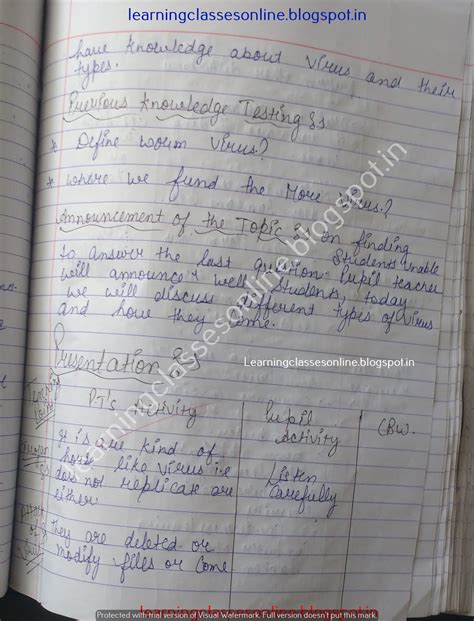 learningclassesonline.blogspot.in
have knowledge about virus and their
types.
Previous Knowledge Testing :-
* Define worm virus?
* where we fund the More virus?
Announcement of the Topic :- on finding
students unable
to answer the last question. Pupil teacher
will announce well students, today
we will discuss different types of virus
and how they come.
Presentation :-
Learningclassesonline.blogspot.in
learningclassesonline.blogspot.in
PT's Activity
Pupil Activity
CBW.
It is are kind of
horse like virus i.e
does not replicate are
either
Listen
Carefully
they are deleted or
modify files or come
Protected with trial version of Visual Watermark. Full version doesn't put this mark.
learningclassesonline.blogspot.in